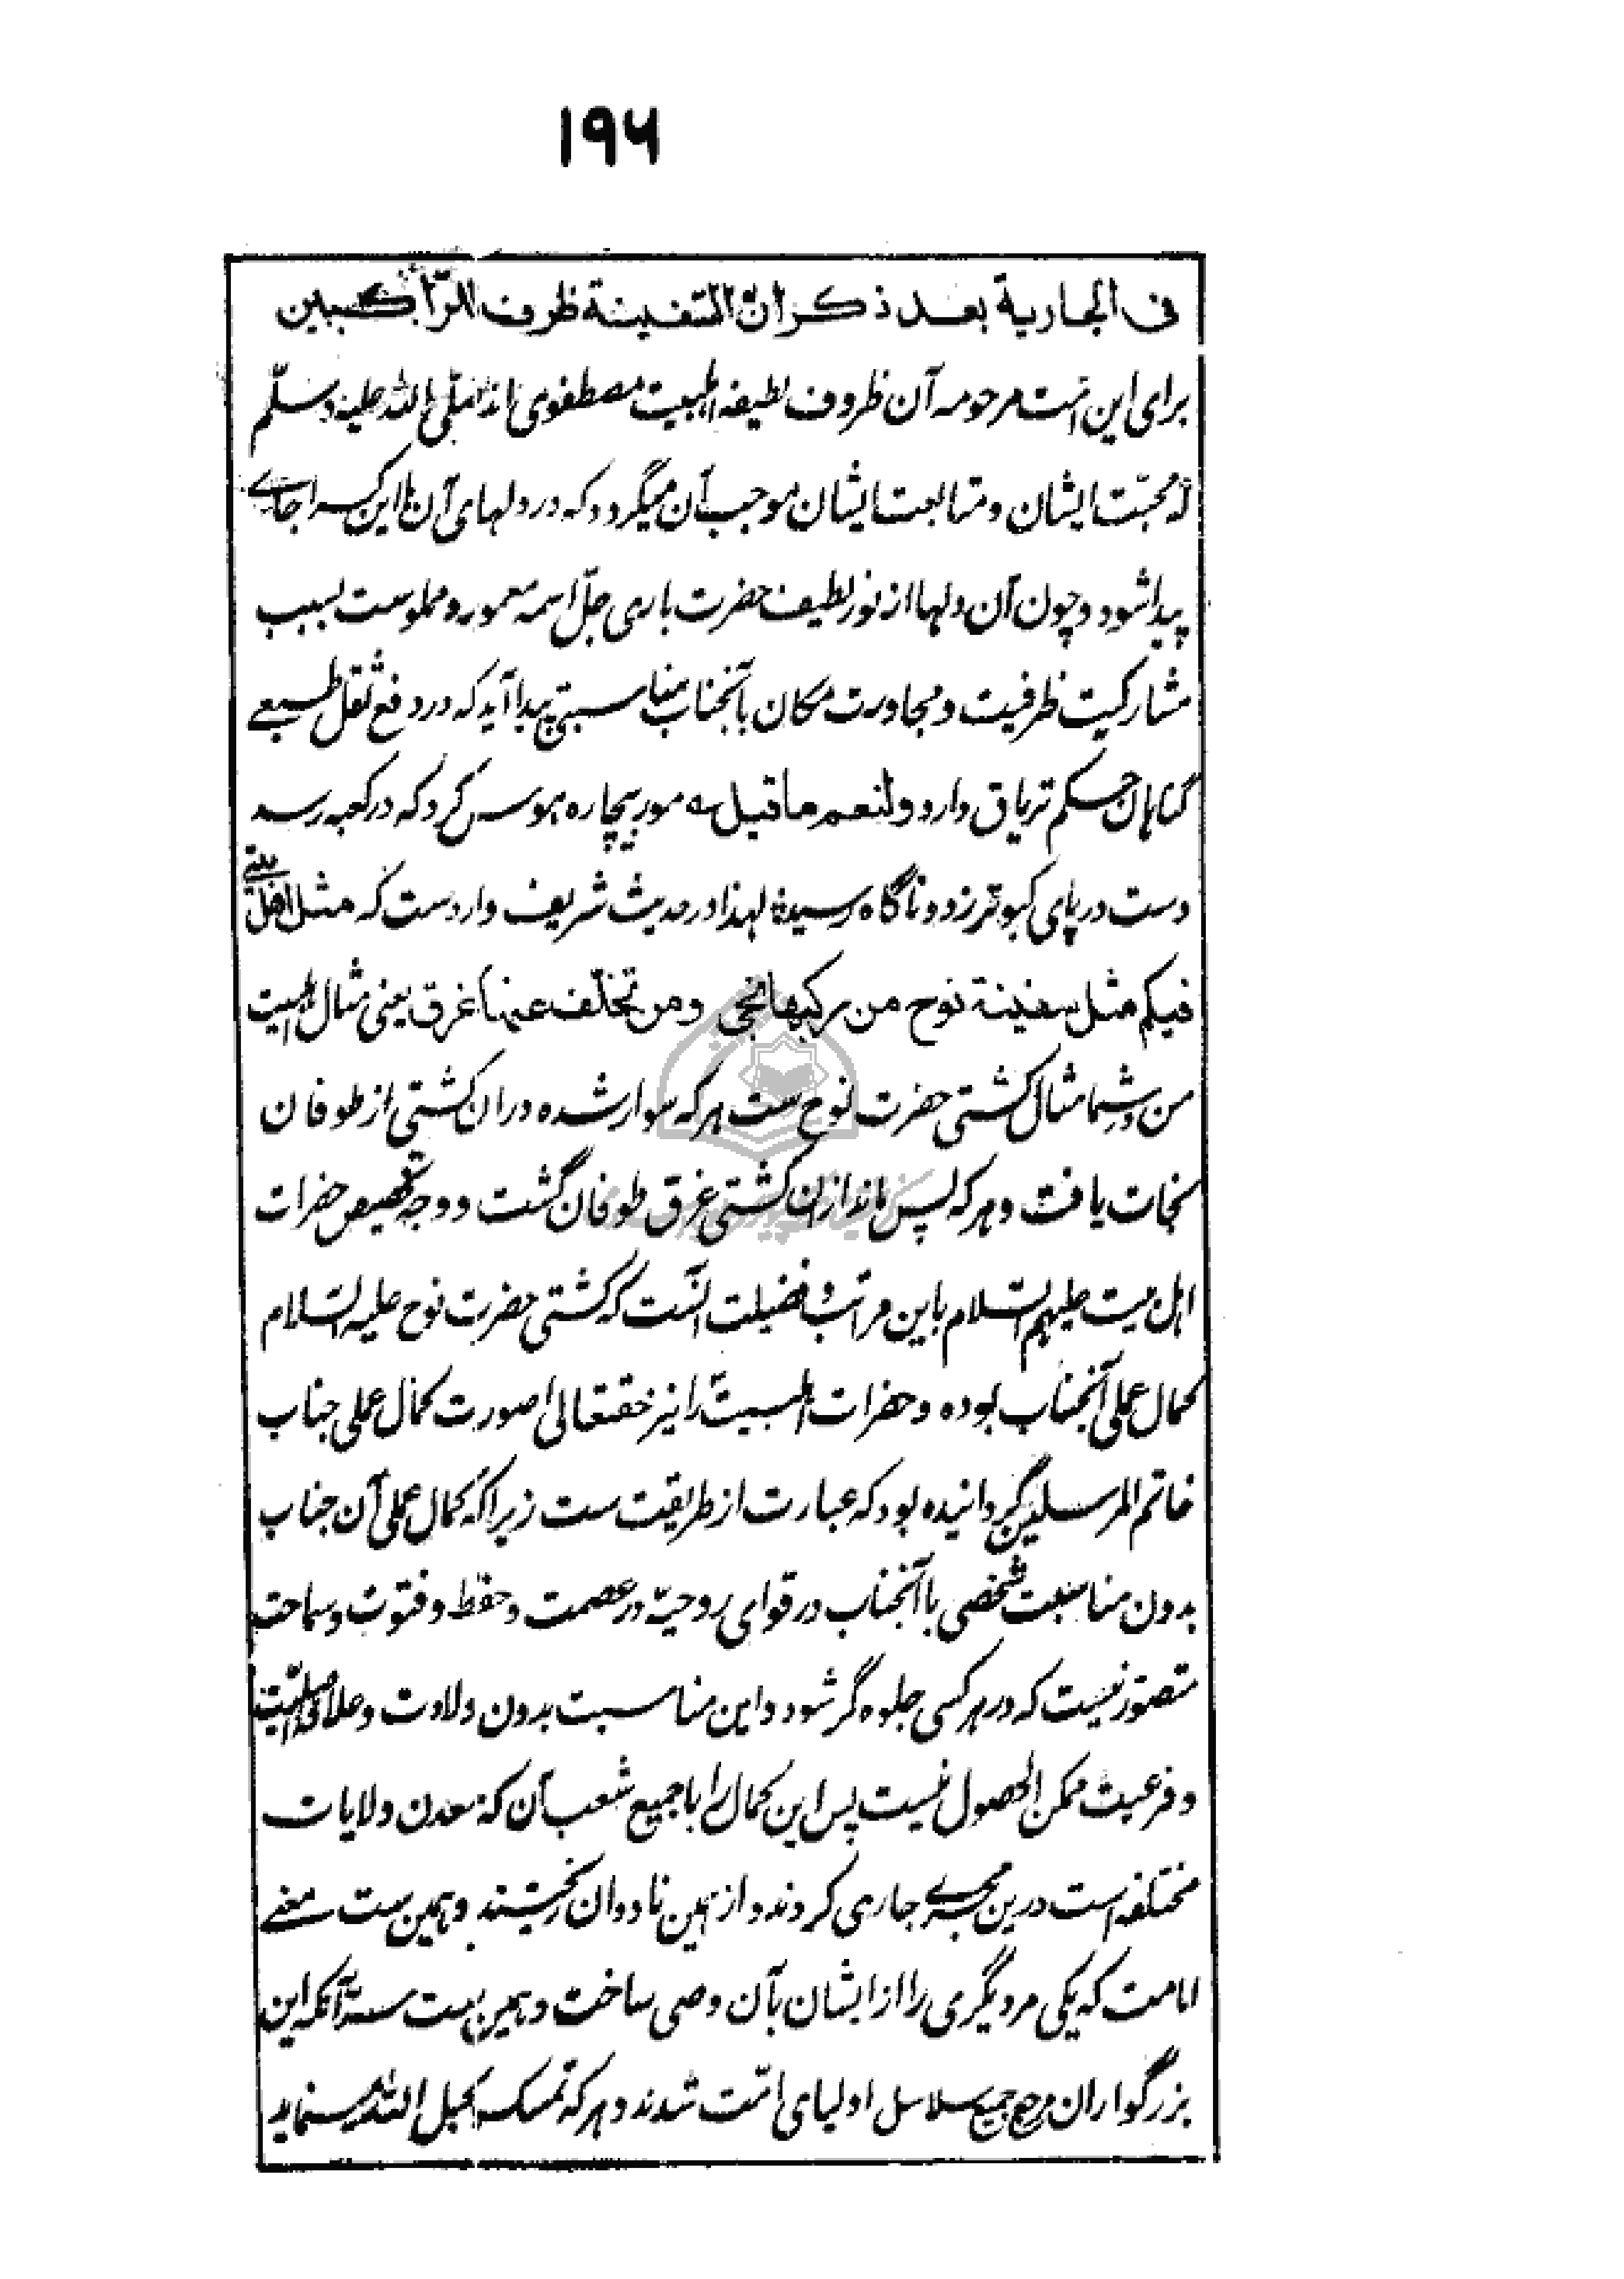 ۱۹۶
فى الجارية بعد ذكر ان السّفينة ظرف للرّاكبين
برای این امّت مرحومه آن ظروف لطیفه اهلبیت مصطفوی اند صلّی الله علیه وسلّم
که محبّت ایشان و متابعت ایشان موجب آن میگردد که در دلهای آن ناین کسرا جاے
پیدا شود و چون آن دلها از نور لطیف حضرت باری جلّ اسمه معمور و مملوست بسبب
مشارکیت ظرفیت و مجاورت مکان باآنجناب مناسبتی پیدا آید که در دفع ثقل طبیعے
گناهان حکم تریاق دارد ولنعم ما قيل مور بیچاره هوس کرد که در کعبه رسد
دست در پای کبوتر زد و ناگاه رسید لهذا در حدیث شریف واردست که مثل اهل بيتى
فيكم مثل سفينة نوح من ركبها نجى ومن تخلّف عنها غرق یعنی مثال اهلبیت
من در شما مثال کشتی حضرت نوح ست هر که سوار شده دران کشتی از طوفان
نجات یافت و هر که پس ماند ازان کشتی غرق طوفان گشت و وجه تخصیص حضرات
اهل بیت علیهم السّلام باین مراتب و فضیلت آنست که کشتی حضرت نوح علیه السّلام
کمال عملی آنجناب بوده و حضرات اهلبیت را نیز حقتعالی صورت کمال عملی جناب
خاتم المرسلین گردانیده بود که عبارت از طریقت ست زیرا که کمال عملی آن جناب
بدون مناسبت شخصی باآنجناب در قوای روحیّه در عصمت و حفظ و فتوت و سماحت
متصوّر نیست که در هر کسی جلوه گر شود و این مناسبت بدون ولادت و علاقه اصلیّت
و فرعیت ممکن الحصول نیست پس این کمال را با جمیع شعب آن که معدن ولایات
مختلفه است درین مجرے جاری کردند و از همین ناودان ریختند و همین ست معنے
امامت که یکی مر دیگری را از ایشان بآن وصی ساخت و همین ست سرّ آنکه این
بزرگواران مرجع جمیع سلاسل اولیای امّت شدند و هر که تمسک بحبل الله مینماید